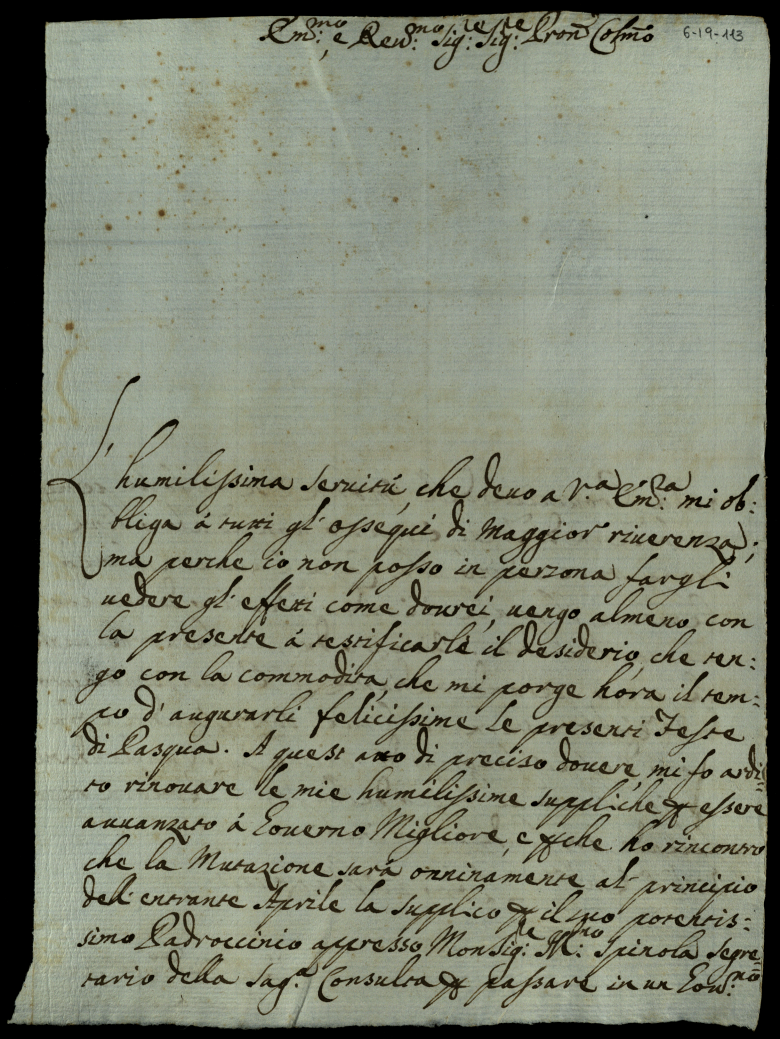 Em:mo, e Reu:mo Sig:re Sig:re Pron Colmo
6-19-113
L'humilissima seruitù, che deuo a V.a Em:za mi ob:
bliga á tutti gl'ossequi di Maggior riuerenza;
ma perche io non posso in perzona fargli
uedere gl'effetti come dourei, uengo almeno con
la presente á testificarle il desiderio, che ten:
go con la commodita, che mi porge hora il tem:
po d'augurarli felicissime le presenti Feste
di Pasqua. A quest atto di preciso douere, mi fo ardi:
to rinouare le mie humilissime suppliche p essere
auuanzato á Gouerno Migliore, e pche ho rincontro
che la Mutazione sará onninamente al principio
dell'entrante Aprile la supplico p il suo potentis:
simo Padroccinio appresso Monsig:re Spinola Segre:
tario della Sag.a Consulta p passare in un Gou:no